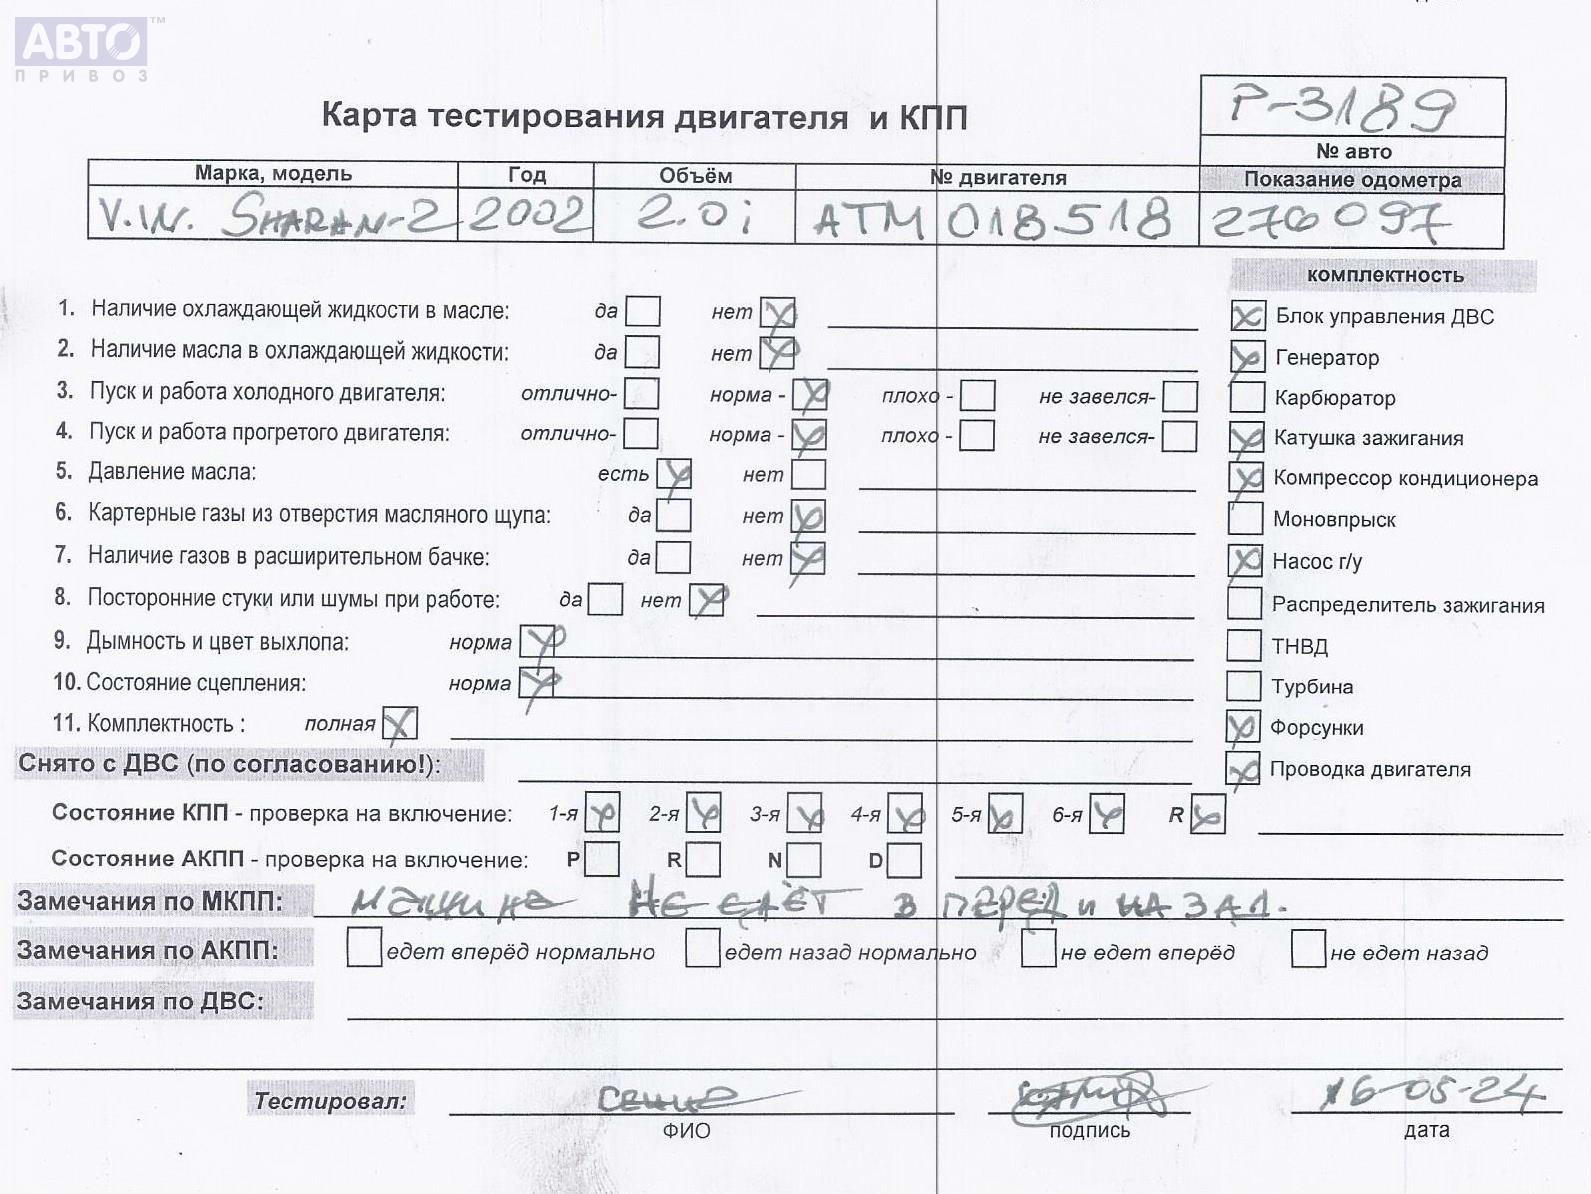 АВТО™
ПРИВОЗ
Карта тестирования двигателя и КПП
P-3189
№ авто
Марка, модель Год Объём № двигателя Показание одометра
V.W. SHARAN-2 2002 2.0i ATM 018518 276097
комплектность
1. Наличие охлаждающей жидкости в масле: да нет
Блок управления ДВС
2. Наличие масла в охлаждающей жидкости: да нет
Генератор
3. Пуск и работа холодного двигателя: отлично- норма - плохо - не завелся-
Карбюратор
4. Пуск и работа прогретого двигателя: отлично- норма - плохо - не завелся-
Катушка зажигания
5. Давление масла: есть нет
Компрессор кондиционера
6. Картерные газы из отверстия масляного щупа: да нет
Моновпрыск
7. Наличие газов в расширительном бачке: да нет
Насос г/у
8. Посторонние стуки или шумы при работе: да нет
Распределитель зажигания
9. Дымность и цвет выхлопа: норма
ТНВД
10. Состояние сцепления: норма
Турбина
11. Комплектность : полная
Форсунки
Снято с ДВС (по согласованию!):
Проводка двигателя
Состояние КПП - проверка на включение: 1-я 2-я 3-я 4-я 5-я 6-я R
Состояние АКПП - проверка на включение: P R N D
Замечания по МКПП: машина НЕ ЕДЕТ В ПЕРЕД И НАЗАД.
Замечания по АКПП: едет вперёд нормально едет назад нормально не едет вперёд не едет назад
Замечания по ДВС:
Тестировал: 16-05-24
ФИО подпись дата